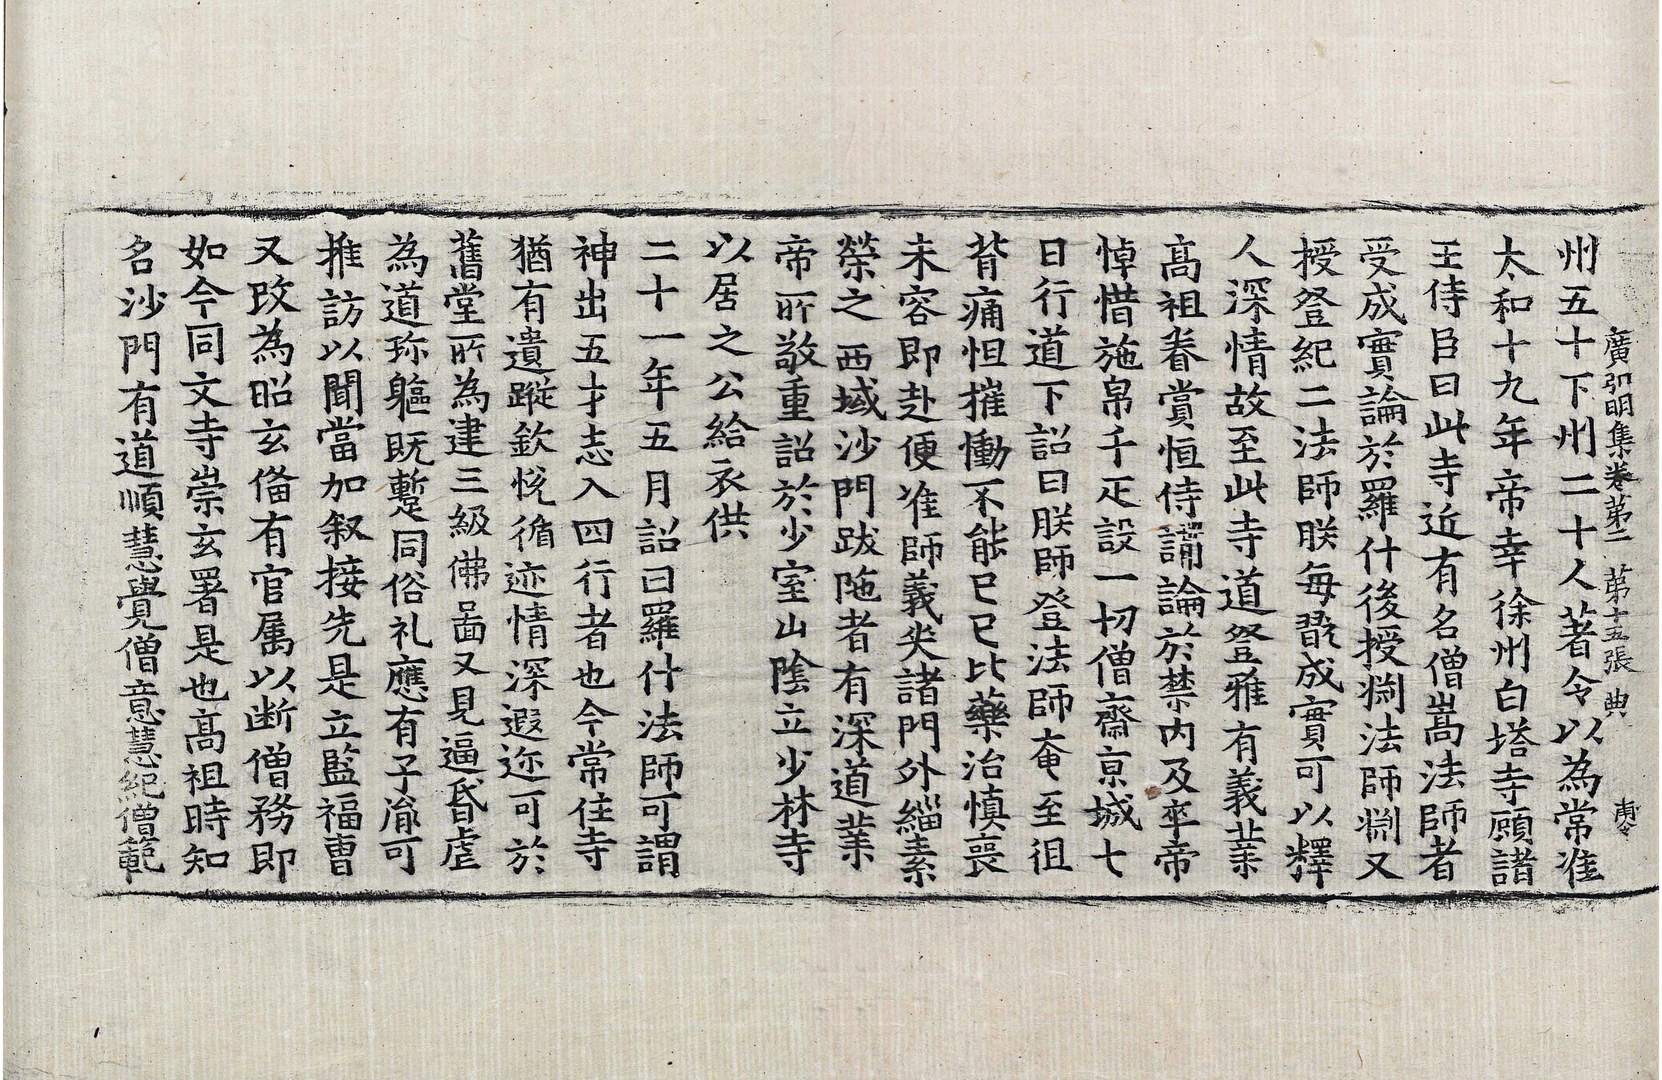 廣弘明集卷第二 第十五張 典
州五十下州二十人著令以為常准
太和十九年帝幸徐州白塔寺顧諸
王侍臣曰此寺近有名僧嵩法師者
受成實論於羅什後授渊法師渊又
授登紀二法師朕每翫成實可以釋
人深情故至此寺道登雅有義業
高祖眷賞恒侍講論於禁内及卒帝
悼惜施帛千疋設一切僧齋京城七
日行道下詔曰朕師登法師奄至徂
背痛怛摧慟不能已已比藥治慎喪
未容即赴便准師義哭諸門外緇素
榮之西域沙門跋陁者有深道業
帝所敬重詔於少室山陰立少林寺
以居之公給衣供
二十一年五月詔曰羅什法師可謂
神出五才志入四行者也今常住寺
猶有遺蹤欽悅循迹情深遐迩可於
舊堂所為建三級佛啚又見逼昏虐
為道殄軀既蹔同俗礼應有子胤可
推訪以聞當加叙接先是立監福曹
又改為昭玄俻有官属以断僧務即
如今同文寺崇玄署是也高祖時知
名沙門有道順慧覺僧意慧紀僧範